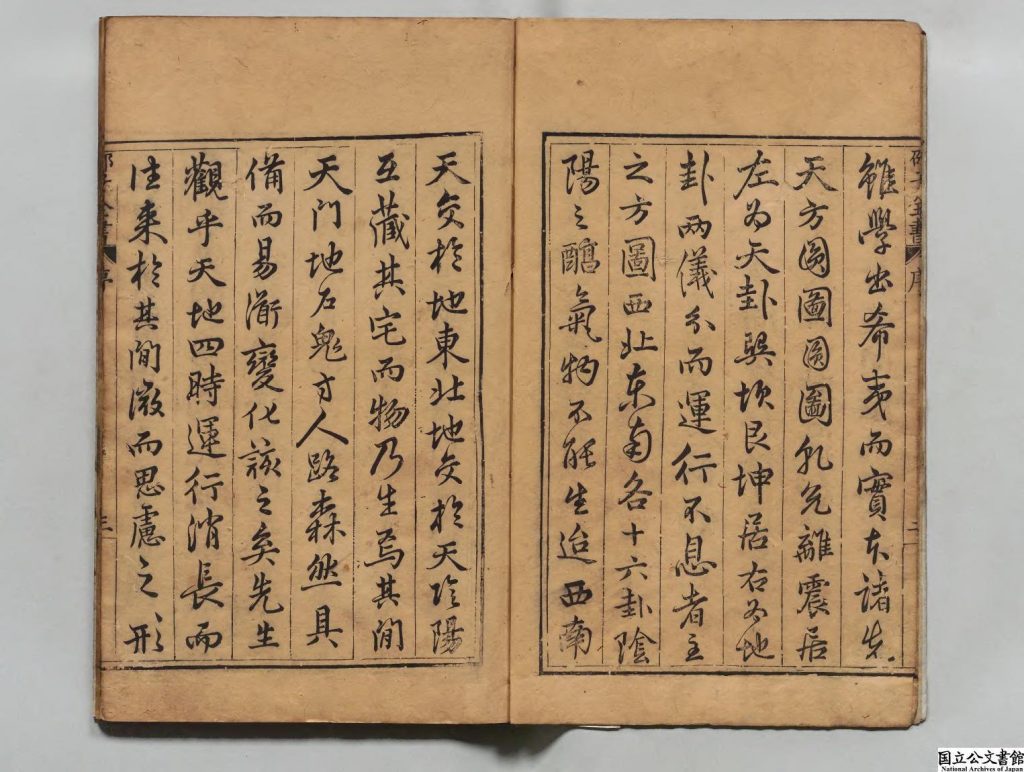 雖學出希夷而實本諸先
天方圓圖圓圖乹兌離震居
左為天卦巽坎艮坤居右為地
卦兩儀分而運行不息者主
之方圖西北東南各十六卦陰
陽之醕氣物不能生迨西南
天交於地東北地交於天陰陽
互藏其宅而物乃生焉其間
天門地户鬼方人路森然具
備而易漸變化該之矣先生
觀乎天地四時運行消長而
往来於其間激而思慮之形
序
三
国立公文書館
National Archives of Japan